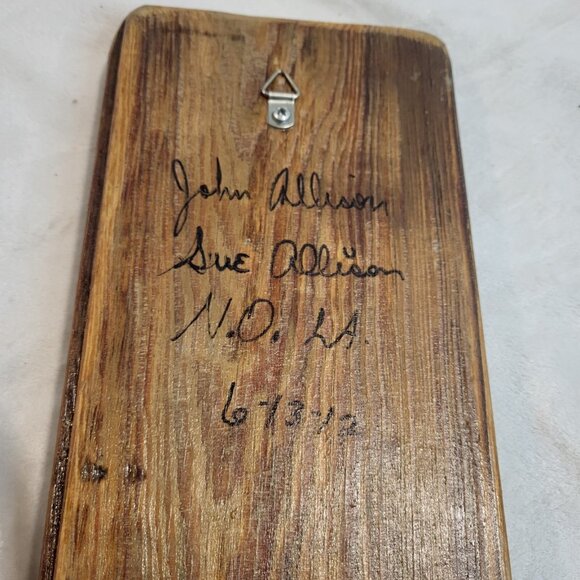 John Allison
Sue Allison
N.O. LA.
6-13-12